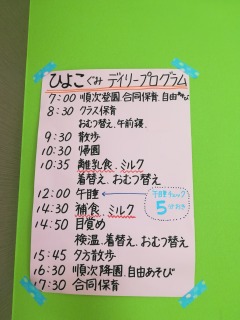 ひよこぐみ デイリープログラム
7:00 順次登園.合同保育.自由あそび
8:30 クラス保育
おむつ替え.午前寝.
9:30 散歩
10:30 帰園
10:35 離乳食.ミルク
着替え.おむつ替え
12:00 午睡
午睡チェック
5分おき
14:30 補食.ミルク
14:50 目覚め
検温.着替え.おむつ替え
15:45 夕方散歩
16:30 順次降園.自由あそび
17:30 合同保育